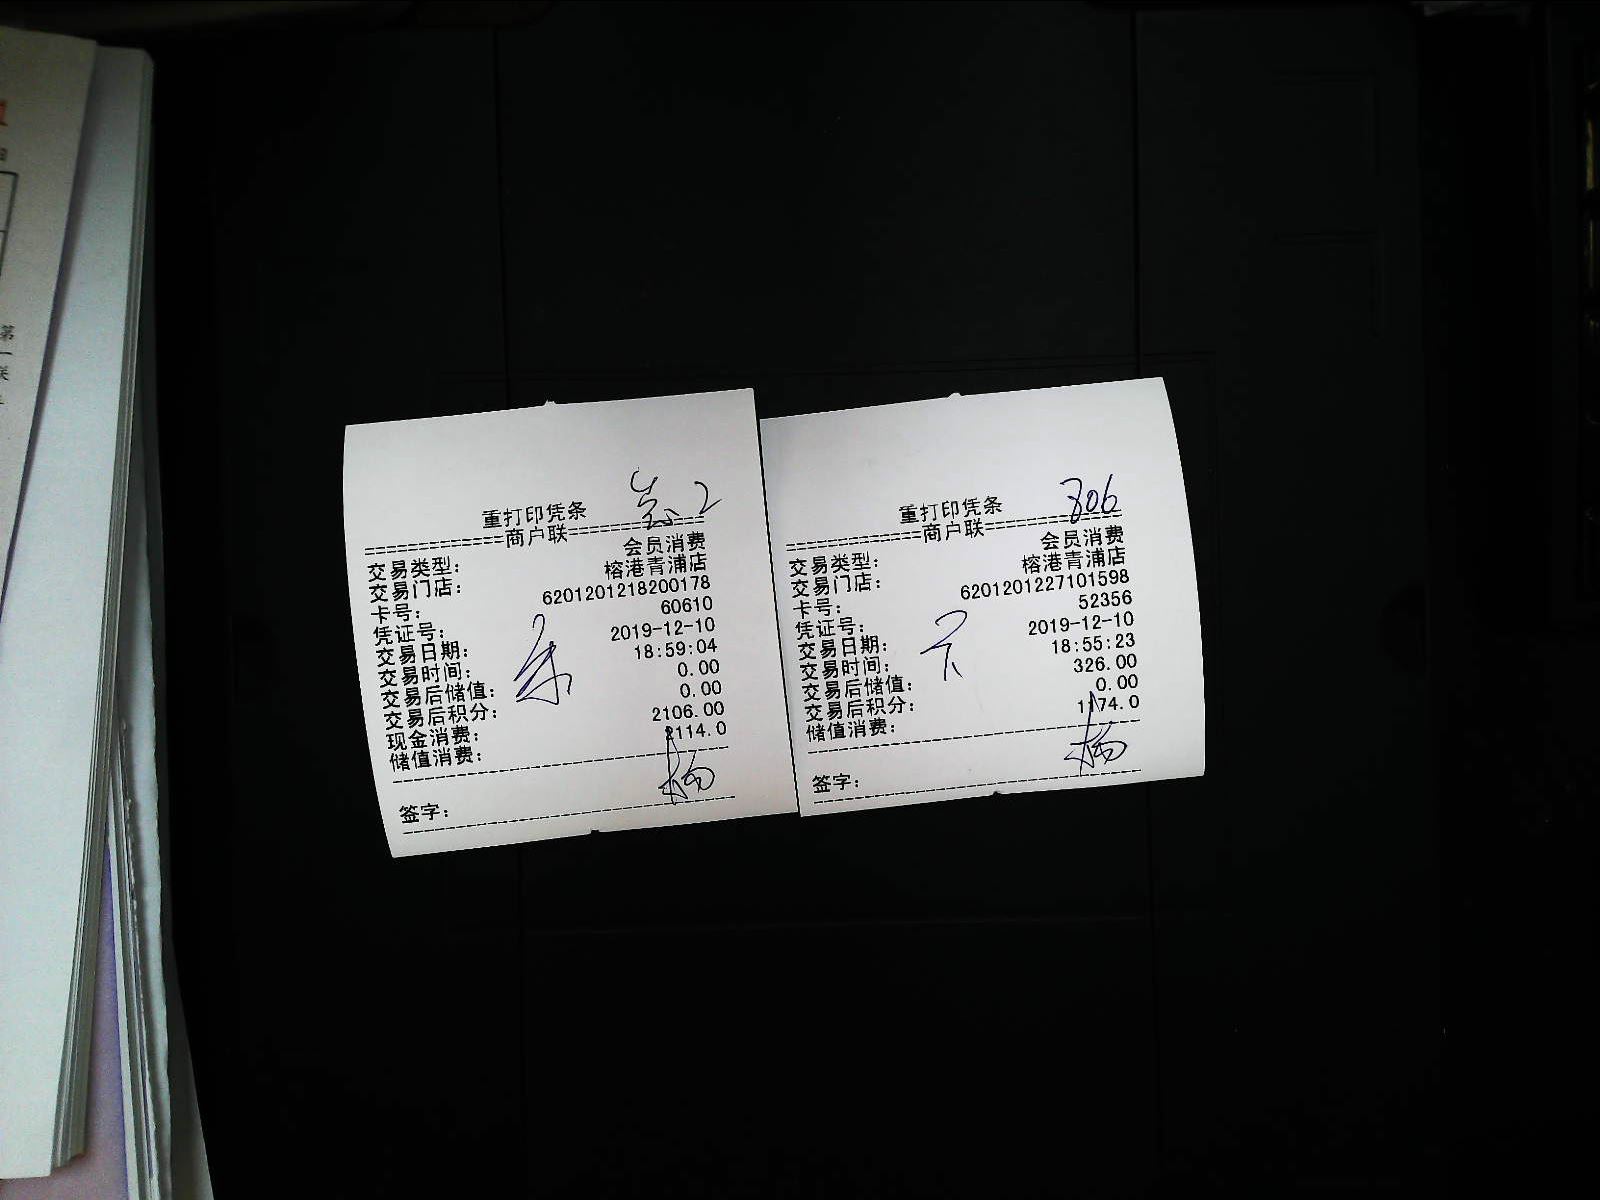 重打印凭条
============商户联============
交易类型： 会员消费
交易门店： 榕港青浦店
卡号： 6201201218200178
凭证号： 60610
交易日期： 2019-12-10
交易时间： 18:59:04
交易后储值： 0.00
交易后积分： 0.00
现金消费： 2106.00
储值消费： 2114.0
签字：
杨
806
重打印凭条
============商户联============
交易类型： 会员消费
交易门店： 榕港青浦店
卡号： 6201201227101598
凭证号： 52356
交易日期： 2019-12-10
交易时间： 18:55:23
交易后储值： 326.00
交易后积分： 0.00
储值消费： 1174.0
签字：
杨
第
一
联